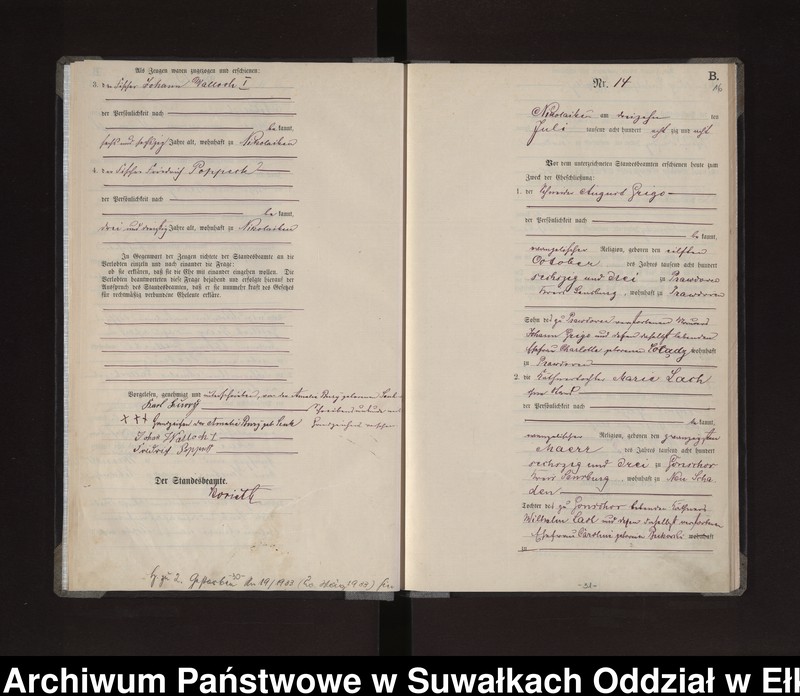 Als Zeugen waren zugezogen und erschienen:
3. der Fischer Johann Walloch I
der Persönlichkeit nach
be kannt,
sechs und sechzig Jahre alt, wohnhaft zu Nikolaiken
4. der Fischer Friedrich
der Persönlichkeit nach
be kannt,
drei und Jahre alt, wohnhaft zu Nikolaiken
In Gegenwart der Zeugen richtete der Standesbeamte an die
Verlobten einzeln und nach einander die Frage:
ob sie erklären, daß sie die Ehe mit einander eingehen wollen. Die
Verlobten beantworteten diese Frage bejahend und erfolgte hierauf der
Ausspruch des Standesbeamten, daß er sie nunmehr kraft des Gesetzes
für rechtmäßig verbundene Eheleute erkläre.
Vorgelesen, genehmigt und unterschrieben, von der geborene
Karl
+++ Handzeichen der geb.
Johan Walloch I
Friedrich
Der Standesbeamte.
-30-
B.
16
Nr. 14
Nikolaiken am dreizehn ten
Juli tausend acht hundert acht zig und acht
Vor dem unterzeichneten Standesbeamten erschienen heute zum
Zweck der Eheschließung:
1. der Schneider August Grigo
der Persönlichkeit nach
be kannt,
evangelischer Religion, geboren den elften
October des Jahres tausend acht hundert
sechszig und drei zu Prawdowen
Kreis Sensburg, wohnhaft zu Prawdowen
Sohn des zu Prawdowen verstorbenen
Johann Grigo und dessen daselbst lebenden
Ehefrau Charlotte geborenen wohnhaft
zu Prawdowen
2. die Marie Lach
der Persönlichkeit nach
be kannt,
evangelischer Religion, geboren den zwanzigsten
Maerz des Jahres tausend acht hundert
sechszig und drei zu Jonschor
Kreis Sensburg, wohnhaft zu Neu Scha-
den
Tochter des zu Jonschor lebenden
Wilhelm Lach und dessen daselbst verstorbenen
Ehefrau Caroline geborenen wohnhaft
zu
-31-
Archiwum Państwowe w Suwałkach Oddział w Eł